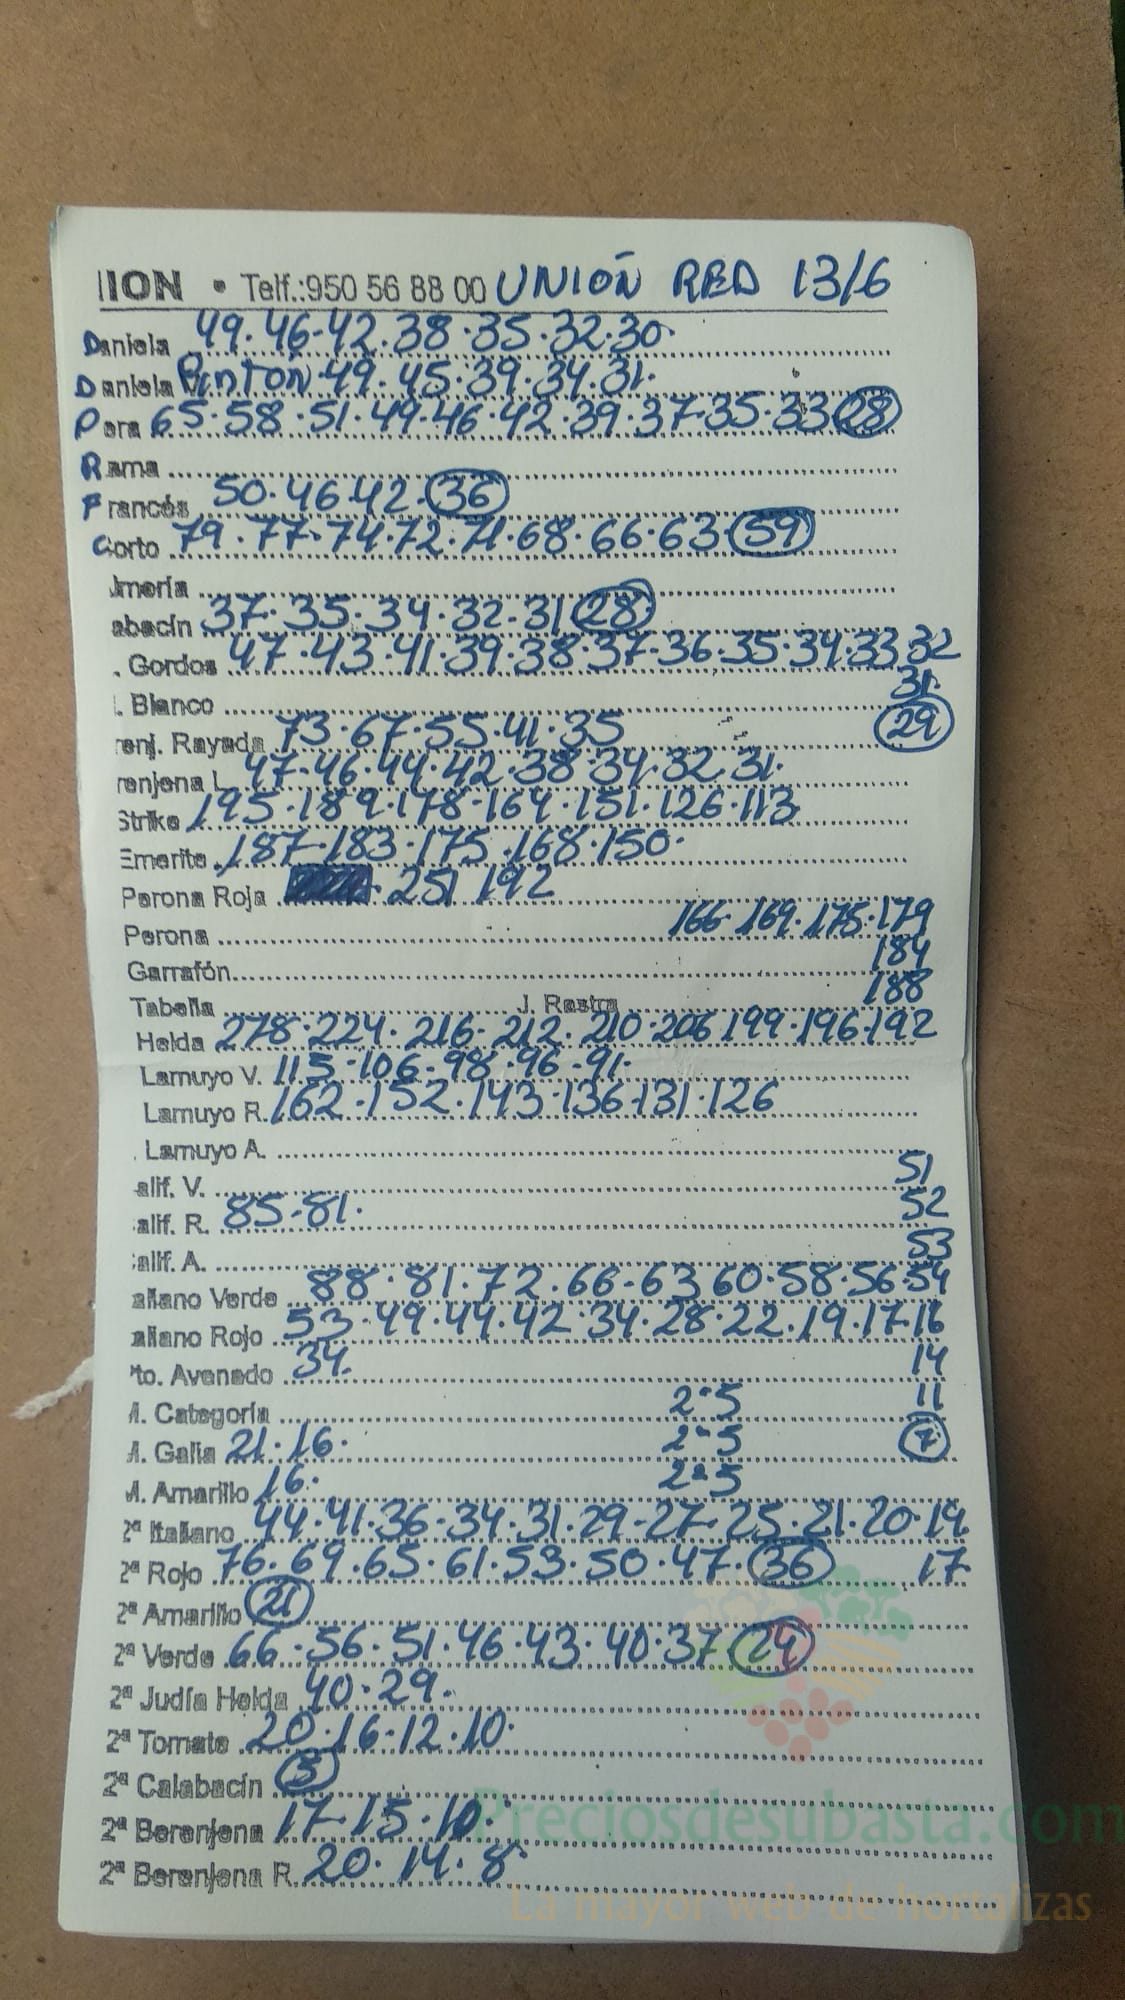 IION • Telf.:950 56 88 00 UNION RED 13/6
Daniela 49.46-42.38.35.32.30.
Daniela Pintón.49.45.39.34.31.
Pera 65.58.51.49.46.42.39.37.35.33 28
Rama
Francés 50.46.42. 36
Corto 79.77.74.72.71.68.66.63 59
lmería
abacín 37.35.34.32.31 28
. Gordos 47.43.41.39.38.37.36.35.34.33 32
31.
l. Blanco
29
renj. Rayada 73.67.55.41.35
renjena L. 47.46.44.42.38.34.32.31.
Strike 195.189.178.164.151.126.113
Emerite 187-183.175.168.150.
Perona Roja 251 192
Perona 166.169.175.179
184
Garrafón
188
Tabella J. Rastra
Helda 278.224.216.212.210.206 199.196.192
Lamuyo V. 115.106.98.96.91.
Lamuyo R. 162.152.143.136.131.126
Lamuyo A.
alif. V. 51
alif. R. 85.81. 52
alif. A. 53
aliano Verde 88.81.72.66-63 60.58.56.54
aliano Rojo 53.49.44.42.34.28.22.19.17.16
to. Avenado 34. 14
M. Categoría 2.5 11
M. Galia 21.16. 2.5 7
M. Amarillo 16. 2.5
2ª Italiano 44.41.36-34.31.29-27.25.21.20.19.
2ª Rojo 76.69.65.61.53.50.47. 36 17.
2ª Amarillo 21
2ª Verde 66.56.51.46.43.40.37. 24
2ª Judía Helda 40.29.
2ª Tomate 20.16.12.10.
2ª Calabacín 5
2ª Berenjena 17-15.10.
2ª Berenjena R. 20.14.8
Preciosdesubasta.com
La mayor web de hortalizas